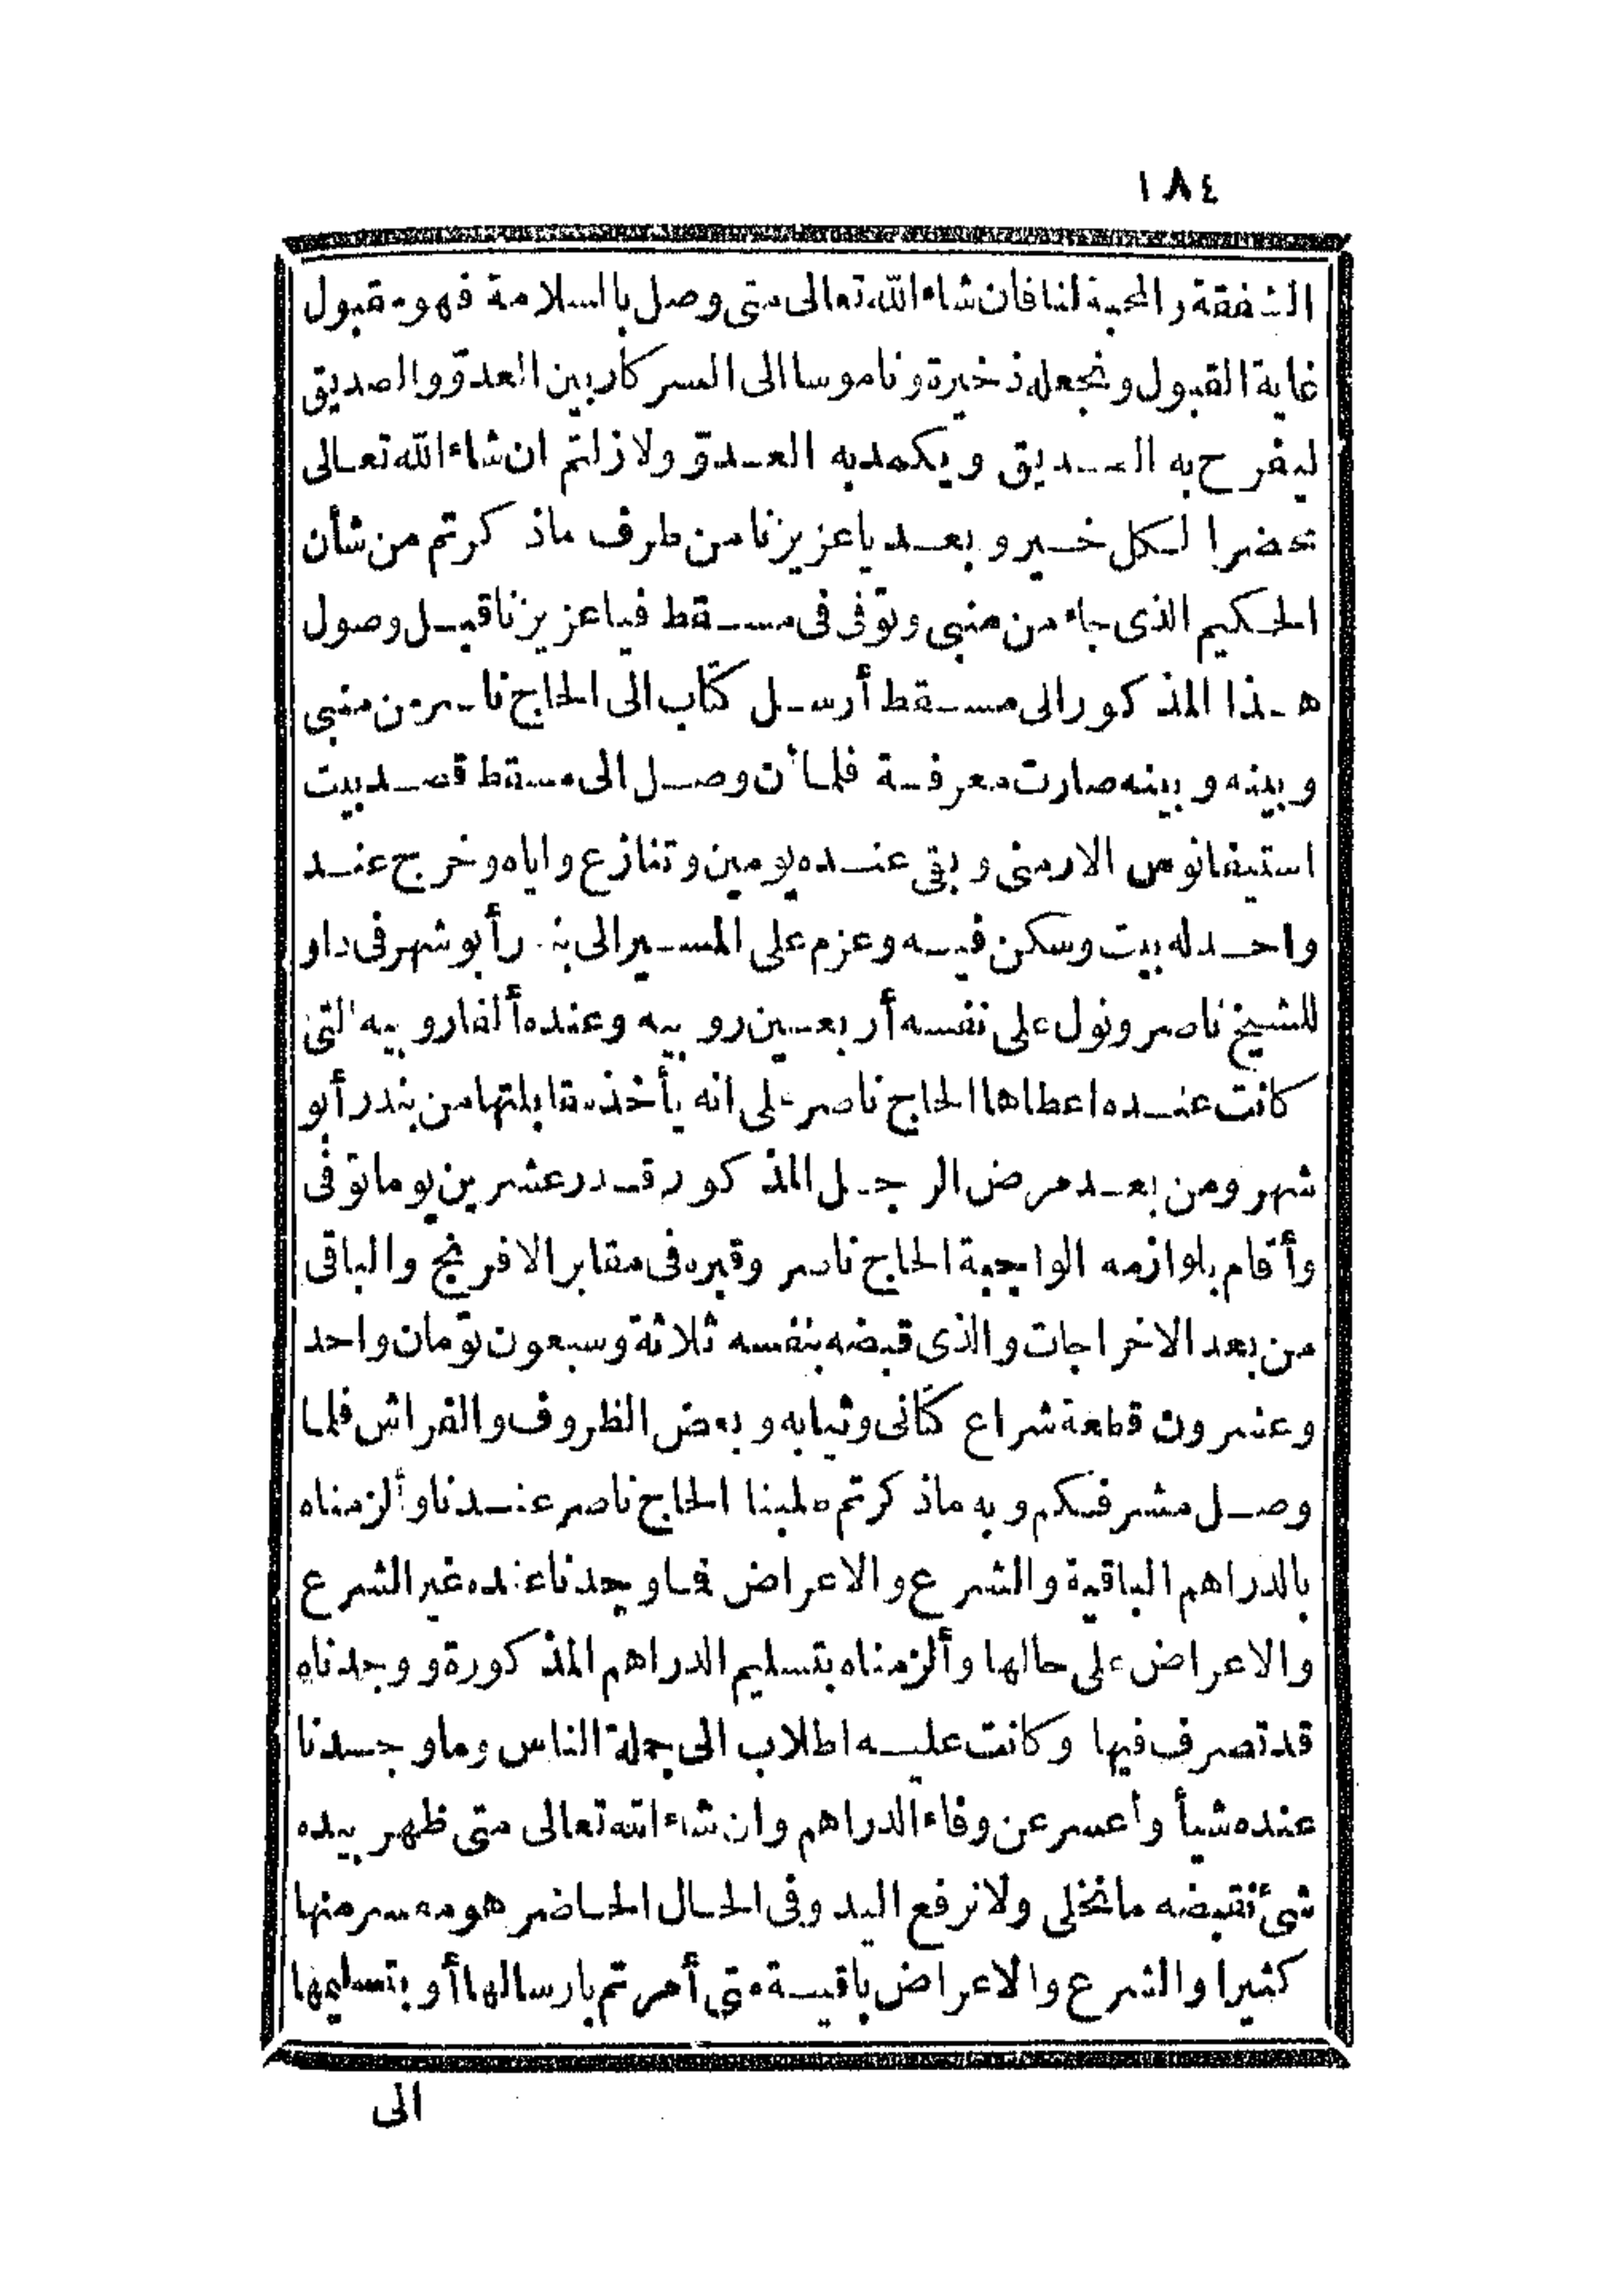 ١٨٤
الشفقة والمحبة لنا فان شاء الله تعالى متى وصل بالسلامة فهو مقبول
غاية القبول ونجعله ذخيرة وناموسا الى السركار بين العدوّ والصديق
ليفرح به الصديق ويكمد به العدوّ ولا زلتم ان شاء الله تعالى
محضرا لكل خير وبعد يا عزيزنا من طرف ما ذكرتم من شأن
الحكيم الذى جاء من منبى وتوفى فى مسقط فيا عزيزنا قبل وصول
هذا المذكور الى مسقط أرسل كتاب الى الحاج ناصر من منبى
وبينه وبينه صارت معرفة فلما أن وصل الى مسقط قصد بيت
استيفانوس الارمنى وبقى عنده يومين وتنازع واياه وخرج عند
واحد له بيت وسكن فيه وعزم على المسير الى بندر أبو شهر فى داو
للشيخ ناصر ونول على نفسه أربعين روبيه وعنده ألفا روبيه التى
كانت عنده اعطاها الحاج ناصر على انه يأخذ مقابلتها من بندر أبو
شهر ومن بعد مرض الرجل المذكور قدر عشرين يوما توفى
وأقام بلوازمه الواجبة الحاج ناصر وقبره فى مقابر الافرنج والباقى
من بعد الاخراجات والذى قبضه بنفسه ثلاثة وسبعون تومان واحد
وعشرون قطعة شراع كتانى وثيابه وبعض الظروف والفراش فلما
وصل مشرفكم وبه ما ذكرتم طلبنا الحاج ناصر عندنا وألزمناه
بالدراهم الباقية والشرع والاعراض فما وجدنا عنده غير الشرع
والاعراض على حالها وألزمناه بتسليم الدراهم المذكورة ووجدناه
قد تصرف فيها وكانت عليه اطلاب الى جملة الناس وما وجدنا
عنده شيأ وأعسر عن وفاء الدراهم وان شاء الله تعالى متى ظهر بيده
شئ نقبضه ما نخلى ولا نرفع اليد وفى الحال الحاضر هو معسر منها
كثيرا والشرع والاعراض باقية متى أمرتم بارسالها أو بتسليمها
الى